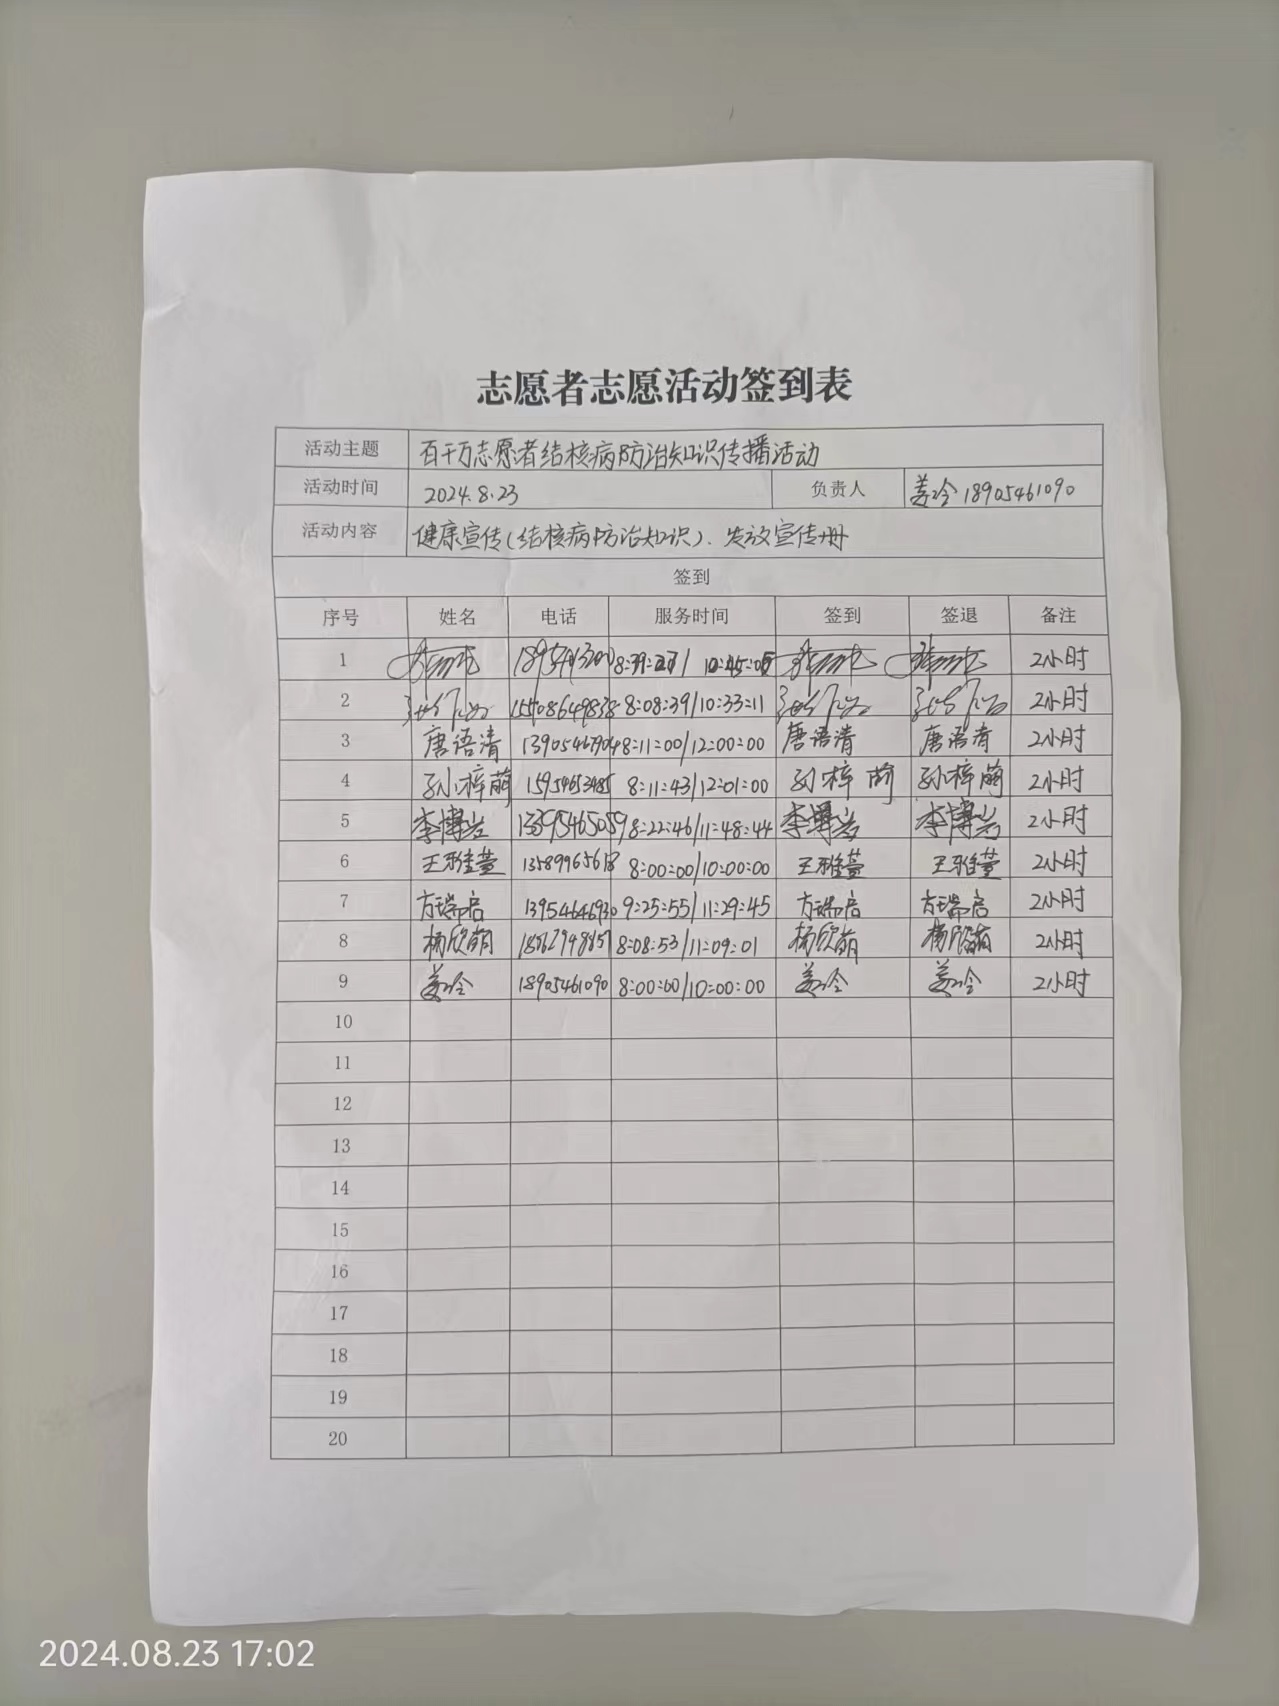 志愿者志愿活动签到表
活动主题 百千万志愿者结核病防治知识传播活动
活动时间 2024.8.23 负责人 姜冷 18905461090
活动内容 健康宣传(结核病防治知识)、发放宣传册
签到
序号 姓名 电话 服务时间 签到 签退 备注
1 2小时
2 8:08:39/10:33:11 2小时
3 唐语清 8:11:00/12:00:00 唐语清 唐语清 2小时
4 孙梓萌 15954653485 8:11:43/12:01:00 孙梓萌 孙梓萌 2小时
5 李博岩 8:22:46/11:48:44 李博岩 李博岩 2小时
6 王雅萱 13589965618 8:00:00/10:00:00 王雅萱 王雅萱 2小时
7 方瑞启 13954646930 9:25:55/11:29:45 方瑞启 方瑞启 2小时
8 杨欣萌 8:08:53/11:09:01 杨欣萌 杨欣萌 2小时
9 姜冷 18905461090 8:00:00/10:00:00 姜冷 姜冷 2小时
10
11
12
13
14
15
16
17
18
19
20
2024.08.23 17:02